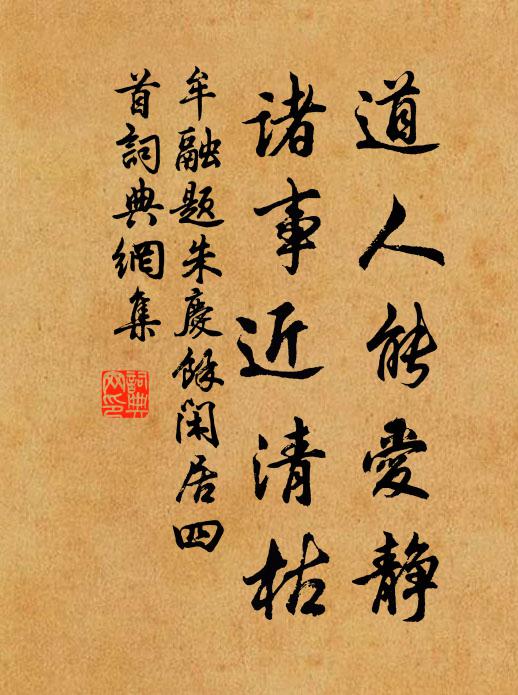 道人能愛静
諸事近清枯
牟融题朱慶餘閑居四
首詞典網集
詞典
网印